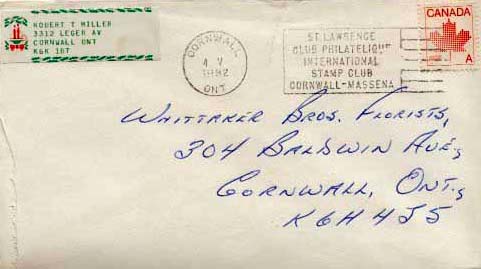 ROBERT T MILLER
3312 LEGER AV
CORNWALL ONT
K6K 1B7
CORNWALL
4 V
1982
ONT
ST. LAWRENCE
CLUB PHILATELIQUE
INTERNATIONAL
STAMP CLUB
CORNWALL-MASSENA
CANADA
A
WHITTAKER BROS. FLORISTS,
304 BALDWIN AVE,
CORNWALL, ONT.,
K6H 4J5